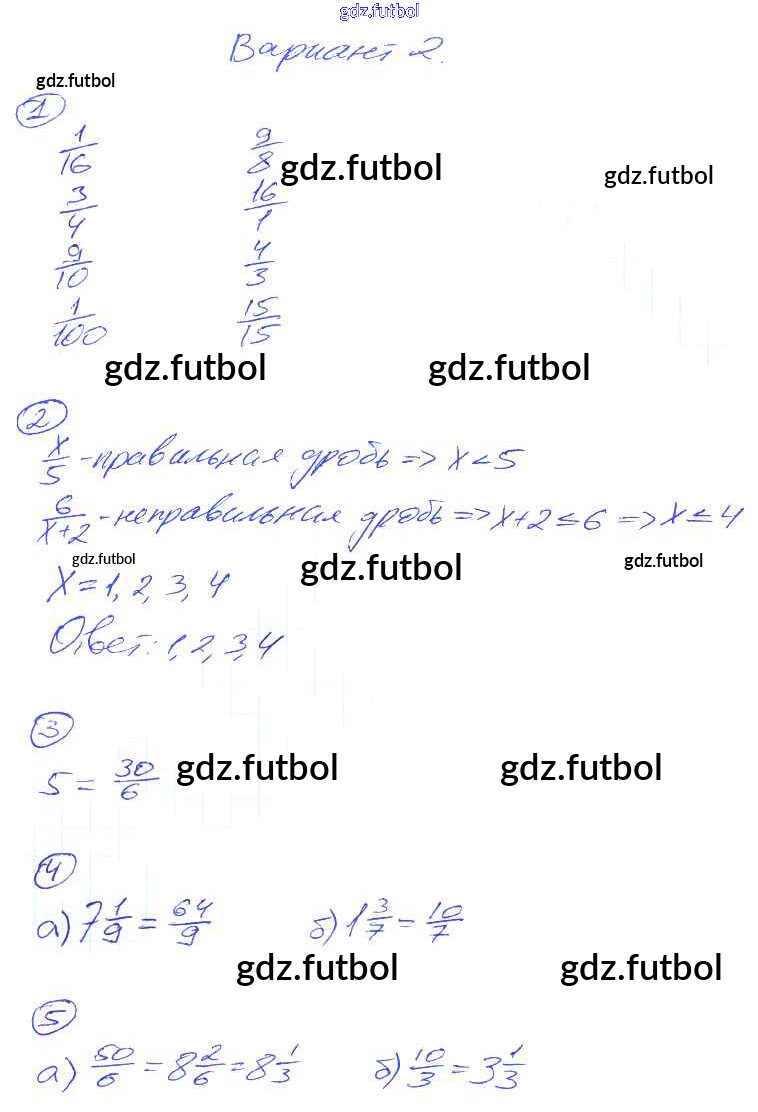 gdz.futbol
Вариант 2.
gdz.futbol
1
1/16 9/8 gdz.futbol gdz.futbol
3/4 16/1
9/10 4/3
1/100 15/15
gdz.futbol gdz.futbol
2
x/5 - правильная дробь => x < 5
6/x+2 - неправильная дробь => x+2 ≤ 6 => x ≤ 4
gdz.futbol gdz.futbol gdz.futbol
x = 1, 2, 3, 4
Ответ: 1, 2, 3, 4
3
5 = 30/6 gdz.futbol gdz.futbol
4
а) 7 1/9 = 64/9 б) 1 3/7 = 10/7
gdz.futbol gdz.futbol
5
а) 50/6 = 8 2/6 = 8 1/3 б) 10/3 = 3 1/3